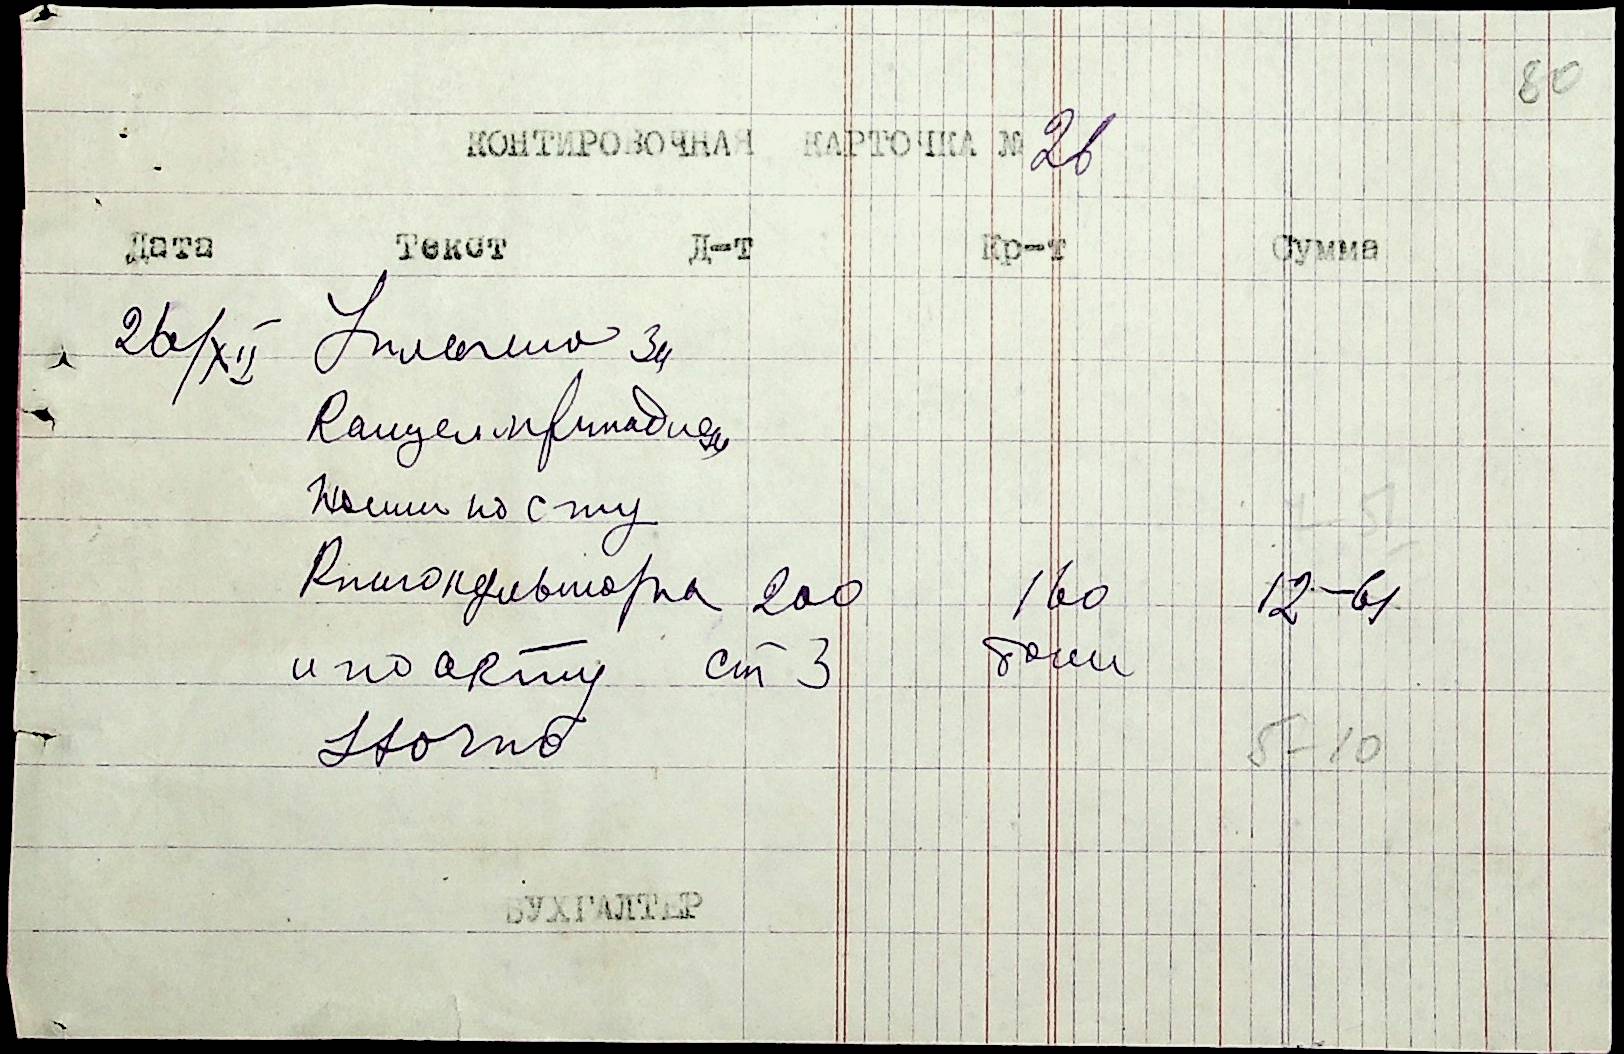 80
КОНТИРОВОЧНАЯ КАРТОЧКА № 26
Дата Текст Д-т Кр-т Сумма
26/XII Уплочено за
Канцелпринадле
жности по сту
Книгокультторга 200 160 12-61
и по акту ст 3
Storno 5-10
БУХГАЛТЕР